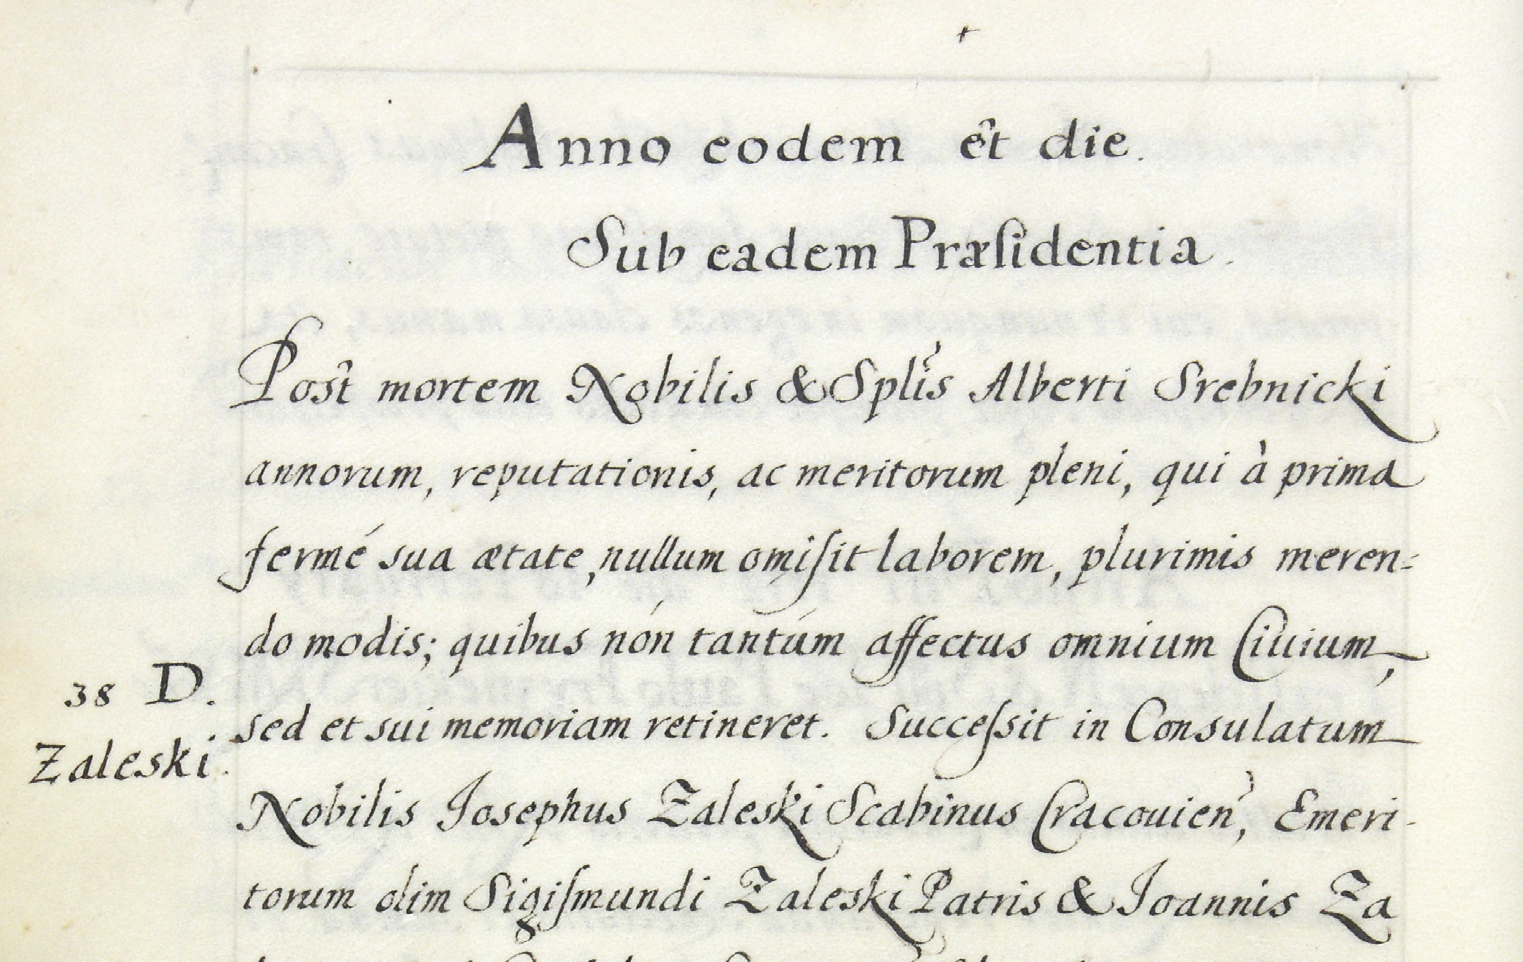 Anno eodem et die.
Sub eadem Præsidentia.
Post mortem Nobilis & Splis Alberti Srebnicki
annorum, reputationis, ac meritorum pleni, qui à prima
fermé sua ætate, nullum omiſit laborem, plurimis meren:
do modis; quibus nón tantúm affectus omnium Ciuium,
38 D.
sed et sui memoriam retineret. Succeſsit in Consulatum
Zaleski.
Nobilis Josephus Zaleski Scabinus Cracouien, Emeri-
torum olim Sigiſmundi Zaleski Patris & Joannis Za